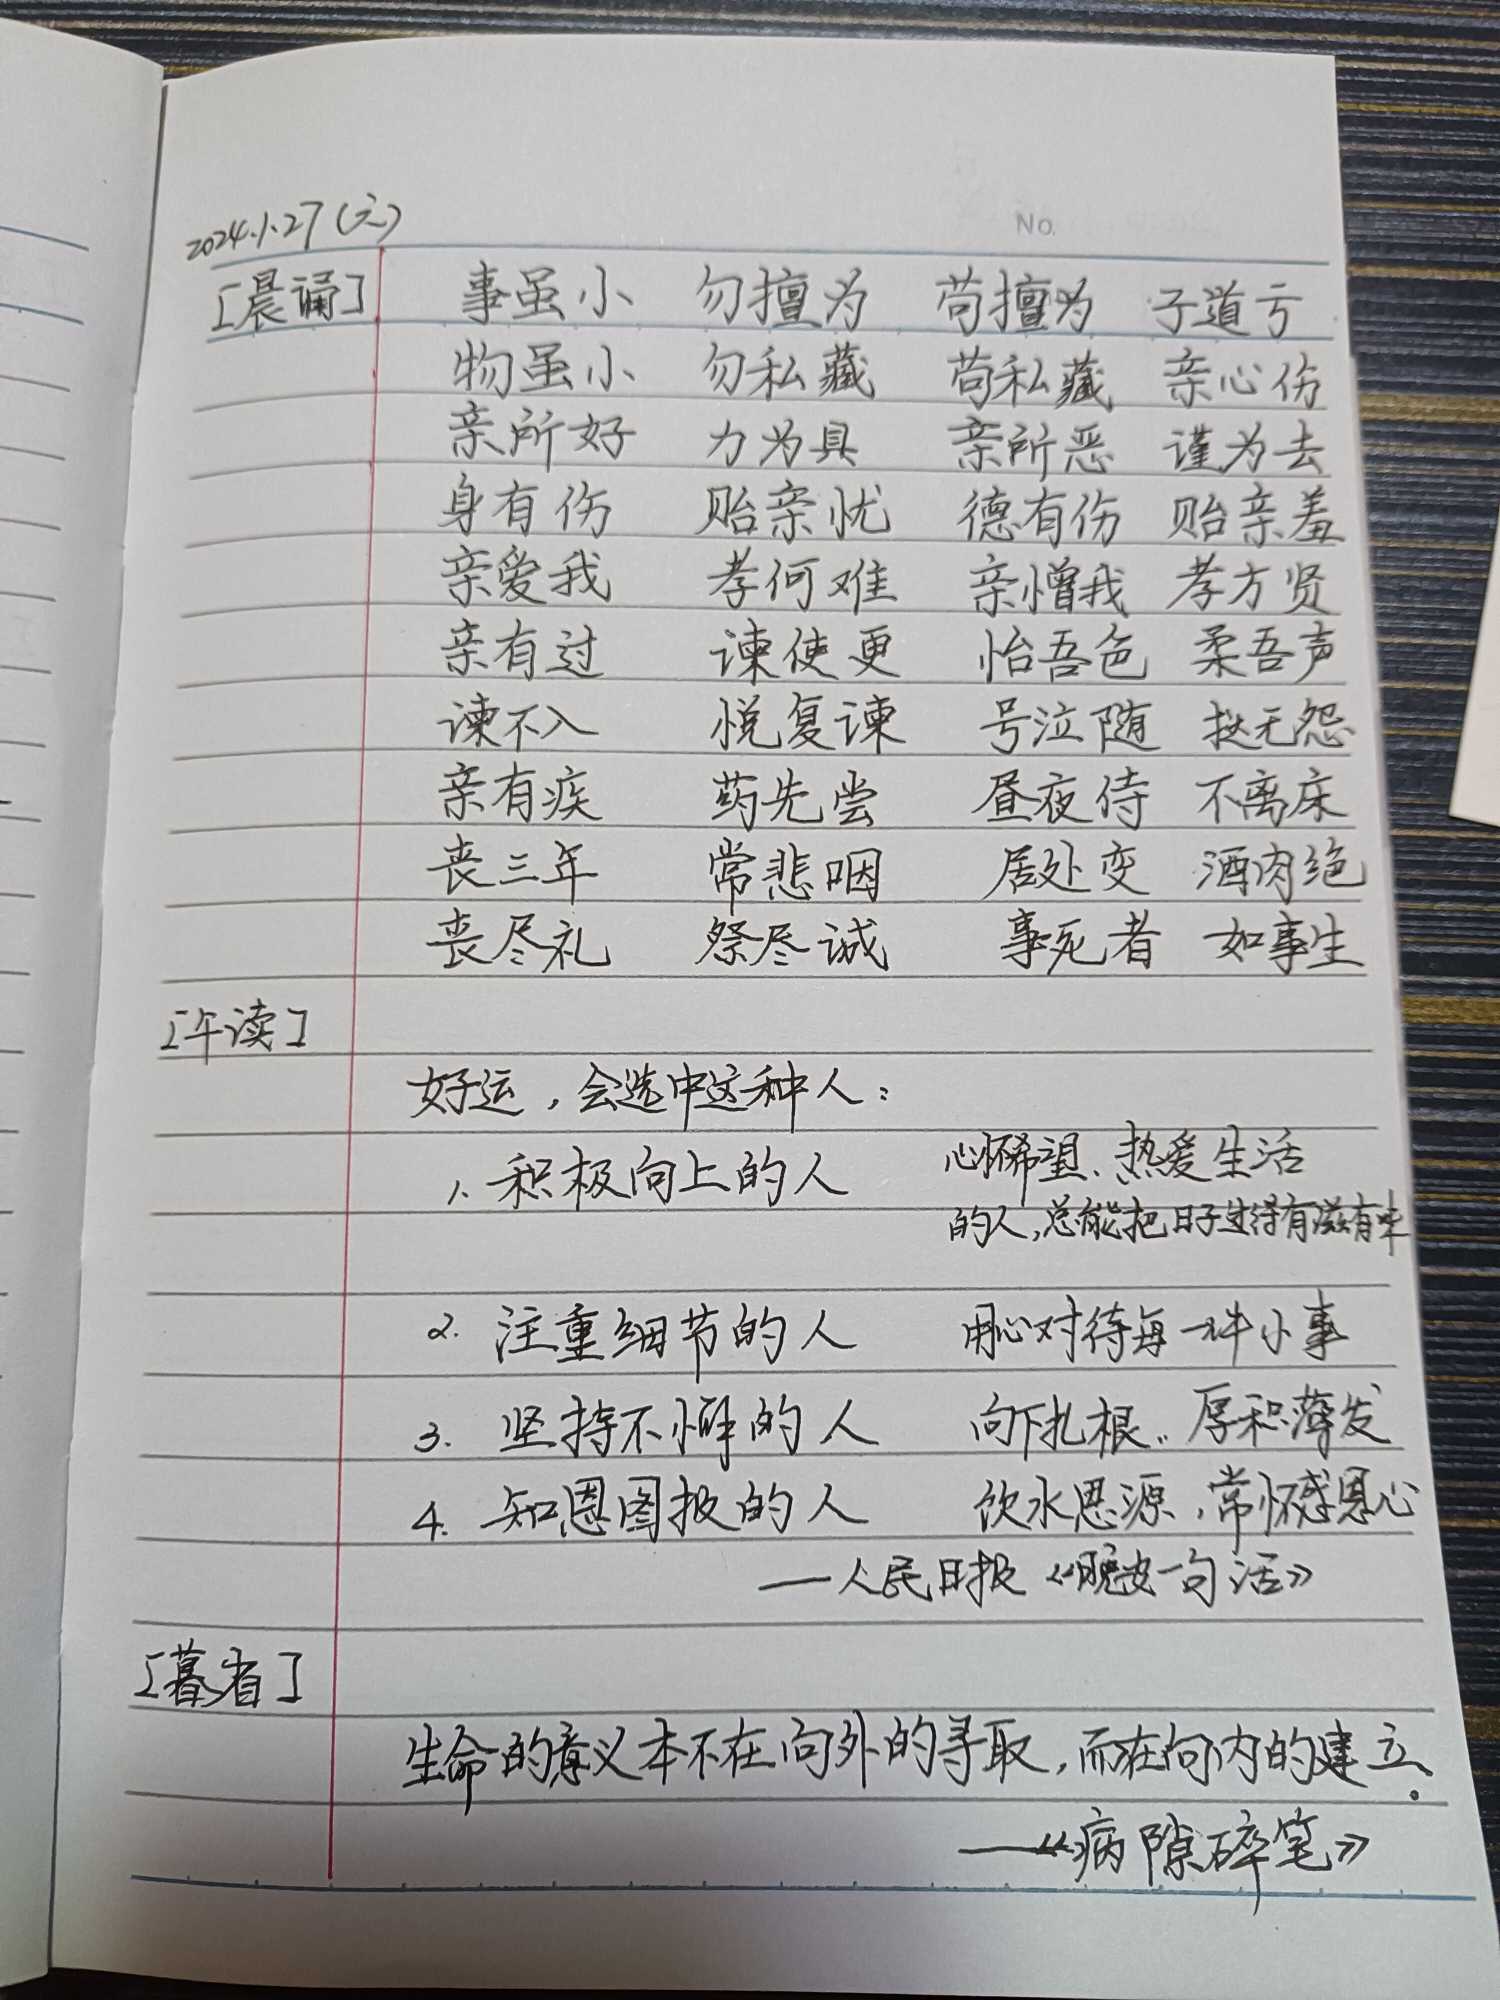 2024.1.27(六)
No.
[晨诵] 事虽小 勿擅为 苟擅为 子道亏
物虽小 勿私藏 苟私藏 亲心伤
亲所好 力为具 亲所恶 谨为去
身有伤 贻亲忧 德有伤 贻亲羞
亲爱我 孝何难 亲憎我 孝方贤
亲有过 谏使更 怡吾色 柔吾声
谏不入 悦复谏 号泣随 挞无怨
亲有疾 药先尝 昼夜侍 不离床
丧三年 常悲咽 居处变 酒肉绝
丧尽礼 祭尽诚 事死者 如事生
[午读]
好运，会选中这种人：
1. 积极向上的人 心怀希望、热爱生活
的人，总能把日子过得有滋有味
2. 注重细节的人 用心对待每一件小事
3. 坚持不懈的人 向下扎根..厚积薄发
4. 知恩图报的人 饮水思源，常怀感恩心
——人民日报《晚安一句话》
[暮省]
生命的意义本不在向外的寻取，而在向内的建立。
——《病隙碎笔》